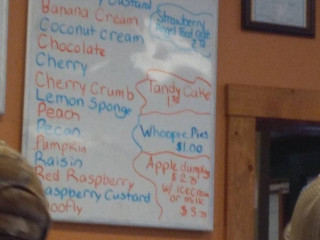 Custard
Banana Cream
Coconut cream
Chocolate
Cherry
Cherry Crumb
Lemon Sponge
Peach
Pecan
Pumpkin
Raisin
Red Raspberry
Raspberry Custard
Strawberry
Tandy Cake
Whoopie Pies
$1.00
Apple dumplg
w/ icecream
or milk